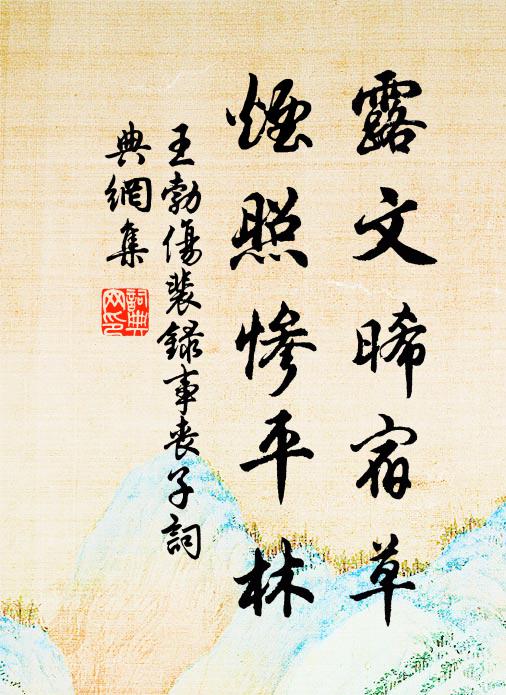 露文晞宿草
煙照慘平林
王勃傷裴錄事喪子詞
典網集
詞典
网印